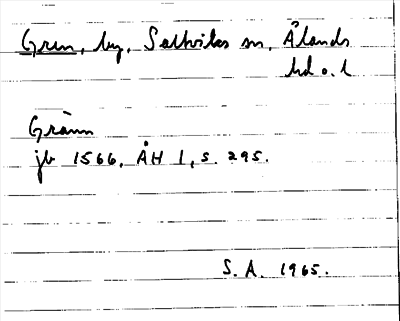 Gren, by, Saltviks sn, Ålands
hd o. l
Gränn
jb 1566, ÅH 1, s. 295.
S. A. 1965.